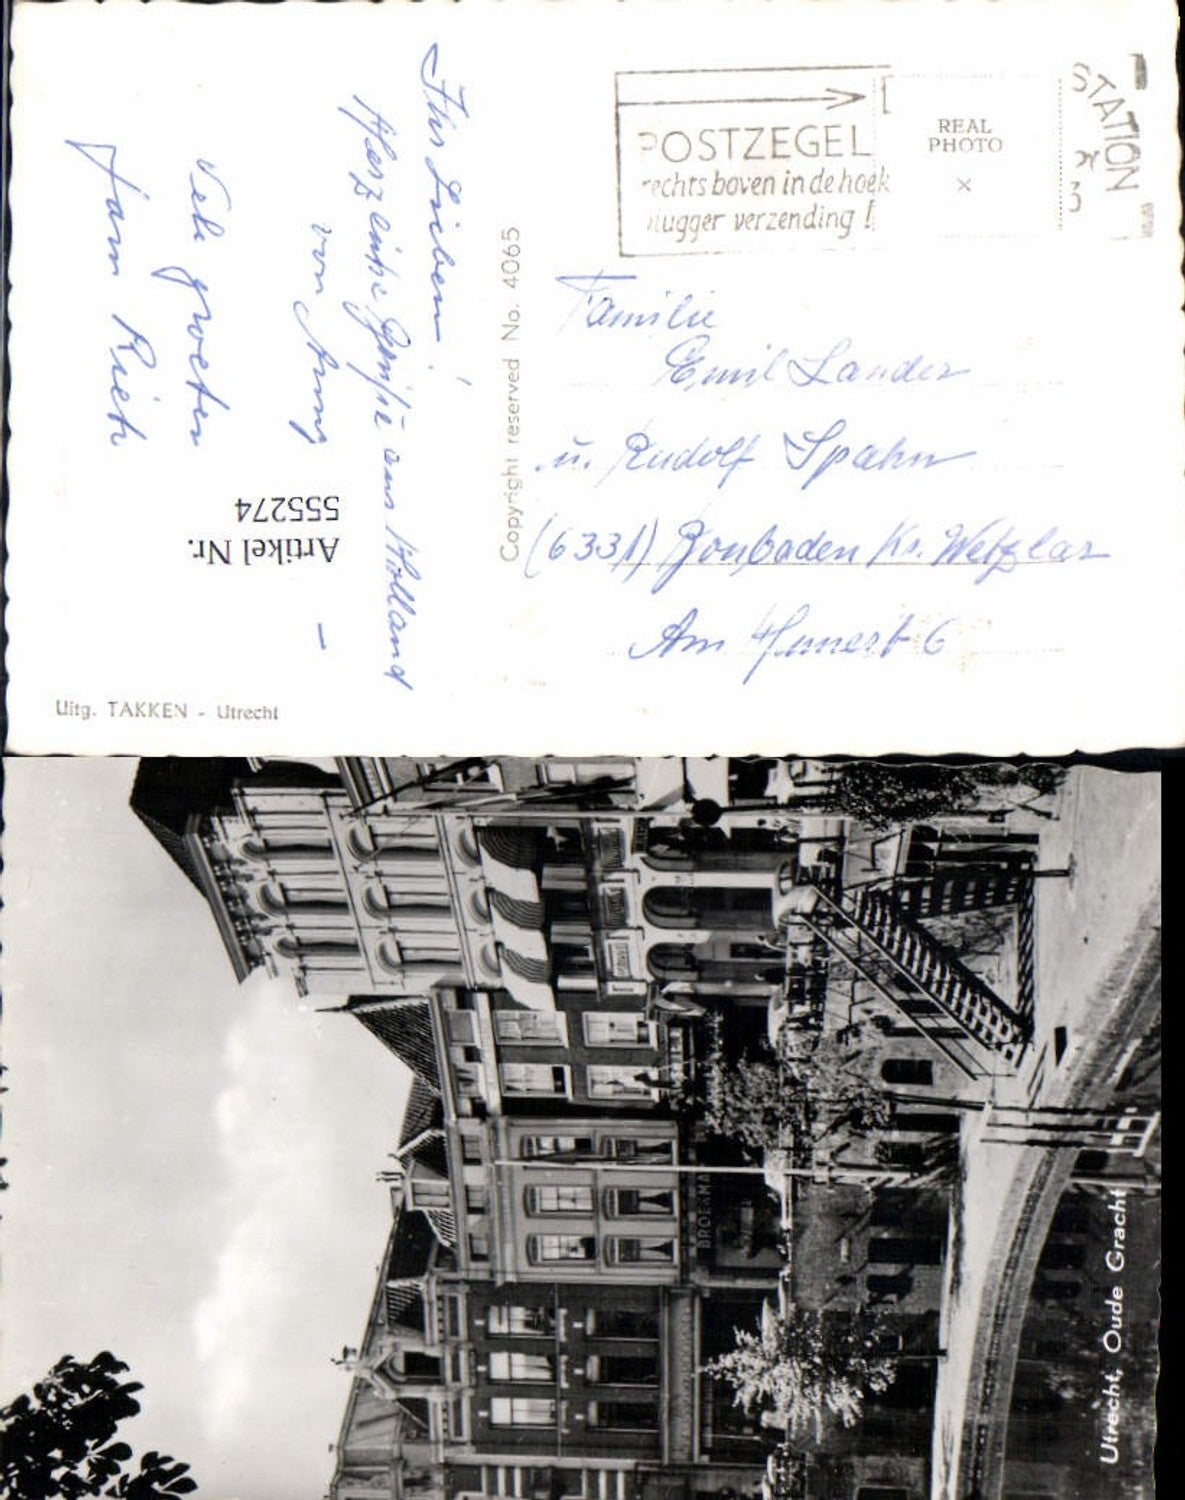 Ihr Lieben!
Herzliche Grüße aus Holland
von Anny
Vele groeten
Jan Riet
Artikel Nr.
555274
Uitg. TAKKEN - Utrecht
Copyright reserved No. 4065
POSTZEGEL
rechts boven in de hoek
vlugger verzending!
REAL
PHOTO
×
STATION
Familie
Emil Lander
u. Rudolf Spahn
(6331) Bonbaden Kr. Wetzlar
Am 6
BROEKMA
Utrecht, Oude Gracht